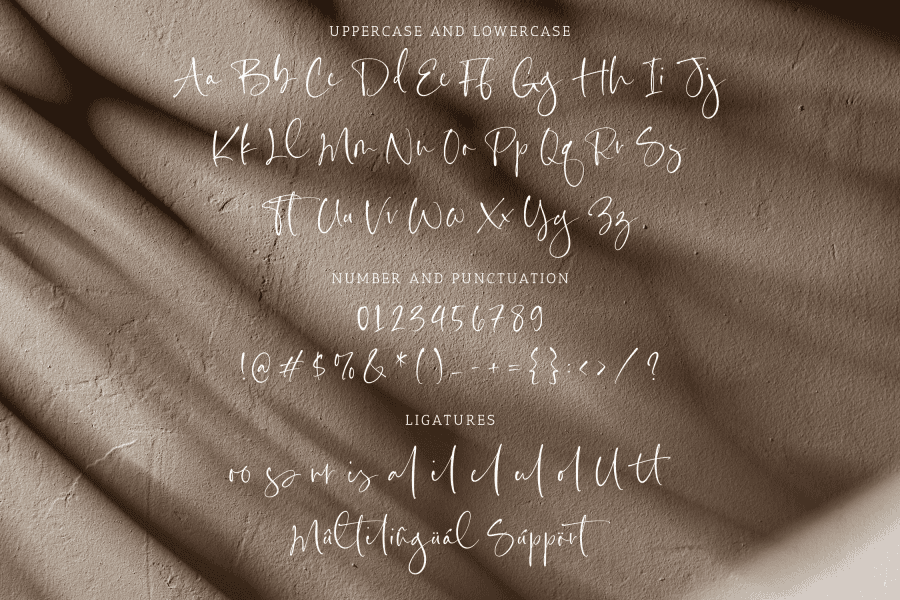 UPPERCASE AND LOWERCASE
Aa Bb Cc Dd Ee Ff Gg Hh Ii Jj
Kk Ll Mm Nn Oo Pp Qq Rr Ss
Tt Uu Vv Ww Xx Yy Zz
NUMBER AND PUNCTUATION
0123456789
!@#$%&*()_-+={}:<>/?
LIGATURES
oo ss rr is al il el ul ol ll tt
Múltilíñgüál Súppört